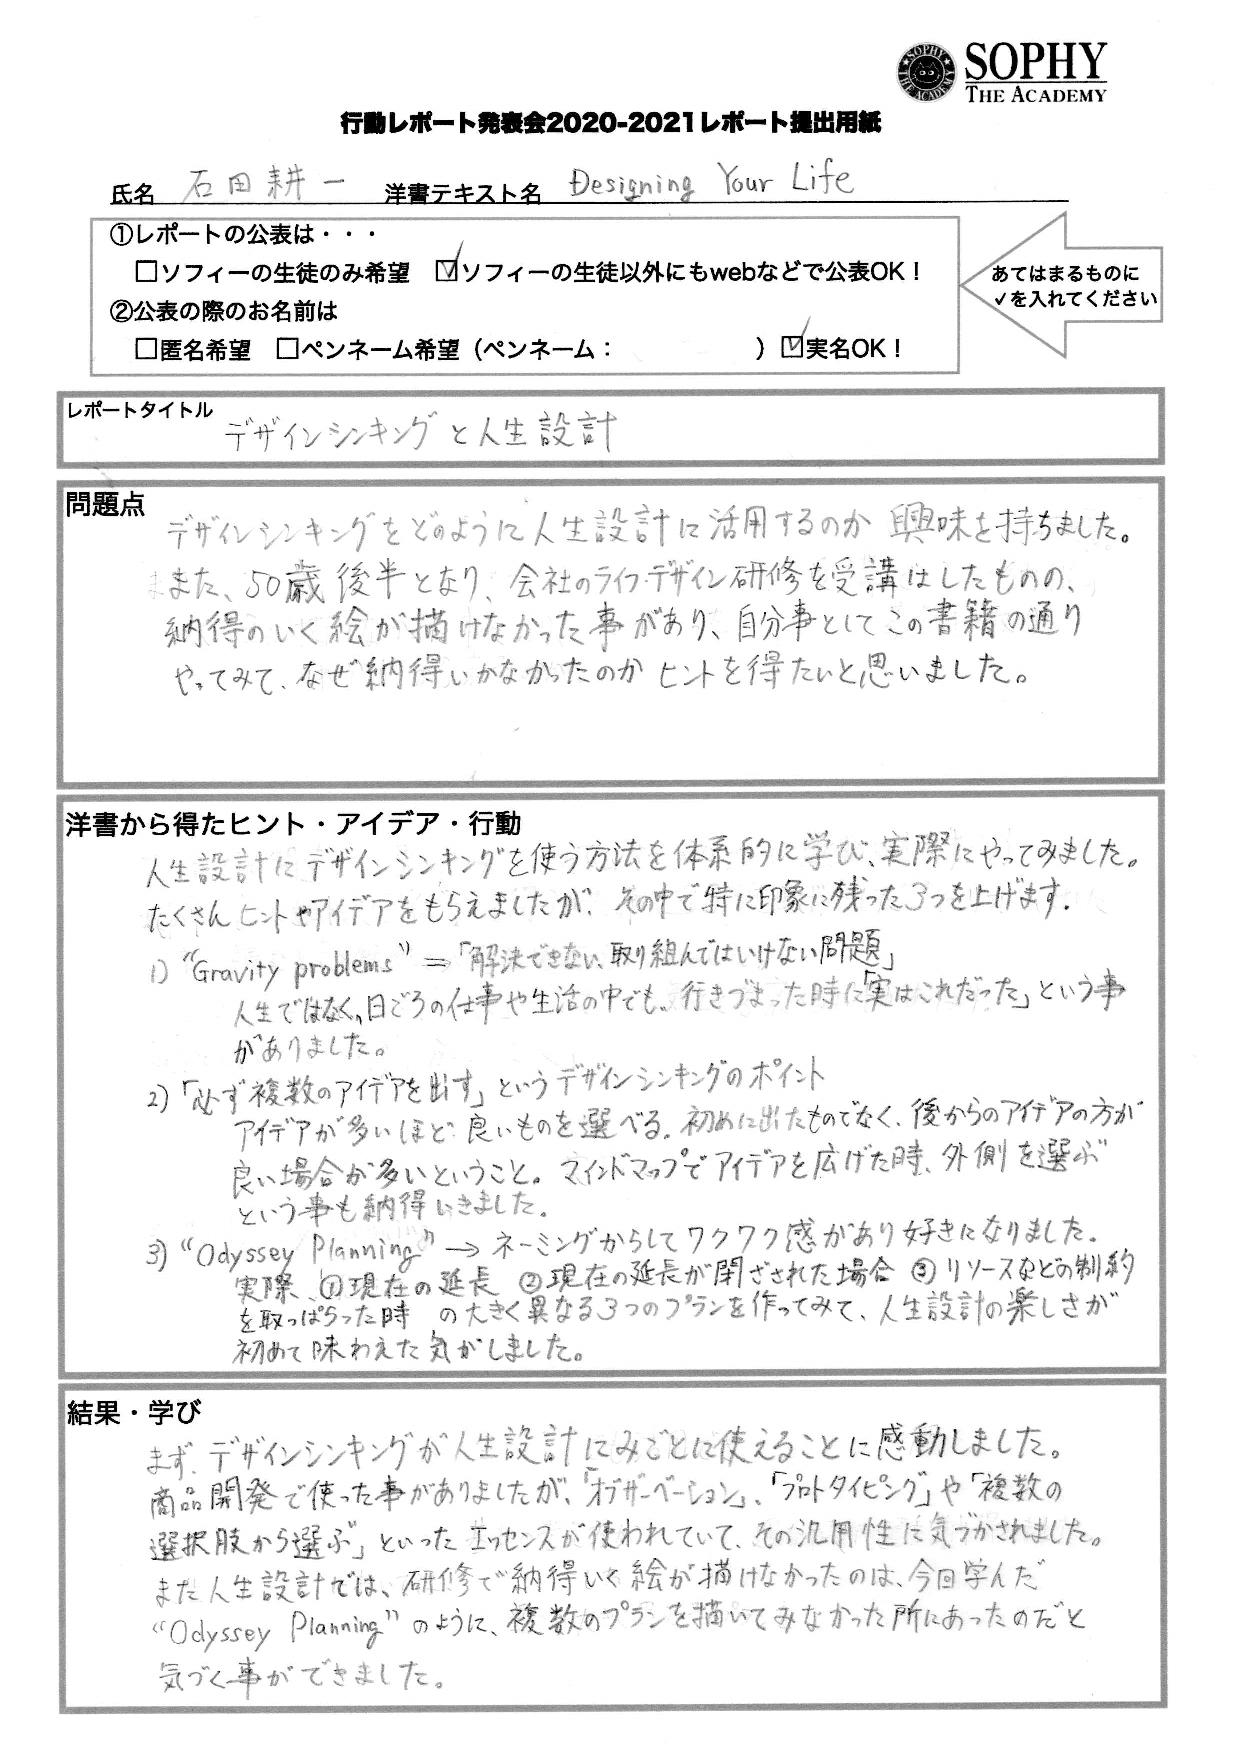 SOPHY
THE ACADEMY
行動レポート発表会2020-2021レポート提出用紙
氏名 石田耕一 洋書テキスト名 Designing Your Life
①レポートの公表は・・・
□ソフィーの生徒のみ希望 ☑ソフィーの生徒以外にもwebなどで公表OK！
②公表の際のお名前は
□匿名希望 □ペンネーム希望（ペンネーム： ）☑実名OK！
あてはまるものに
✓を入れてください
レポートタイトル
デザインシンキングと人生設計
問題点
デザインシンキングをどのように人生設計に活用するのか 興味を持ちました。
また、50歳後半となり、会社のライフデザイン研修を受講はしたものの、
納得のいく絵が描けなかった事があり、自分事としてこの書籍の通り
やってみて、なぜ納得いかなかったのか ヒントを得たいと思いました。
洋書から得たヒント・アイデア・行動
人生設計にデザインシンキングを使う方法を体系的に学び、実際にやってみました。
たくさんヒントやアイデアをもらえましたが、その中で特に印象に残った3つを上げます.
1) “Gravity problems” ＝「解決できない、取り組んではいけない問題」
人生ではなく、日ごろの仕事や生活の中でも、行きづまった時に「実はこれだった」という事
がありました。
2)「必ず複数のアイデアを出す」というデザインシンキングのポイント
アイデアが多いほど 良いものを選べる. 初めに出たものでなく、後からのアイデアの方が
良い場合が多いということ。マインドマップでアイデアを広げた時、外側を選ぶ
という事も納得いきました.
3) “Odyssey Planning” → ネーミングからしてワクワク感があり好きになりました.
実際、①現在の延長 ②現在の延長が閉ざされた場合 ③リソースなどの制約
を取っぱらった時 の大きく異なる3つのプランを作ってみて、人生設計の楽しさが
初めて味わえた気がしました。
結果・学び
まず、デザインシンキングが人生設計にみごとに使えることに感動しました。
商品開発で使った事がありましたが、「オブザーベーション」、「プロトタイピング」や「複数の
選択肢から選ぶ」といった エッセンスが使われていて、その汎用性に気づかされました。
また人生設計では、研修で納得いく絵が描けなかったのは、今回学んだ
“Odyssey Planning” のように、複数のプランを描いてみなかった所にあったのだと
気づく事ができました。